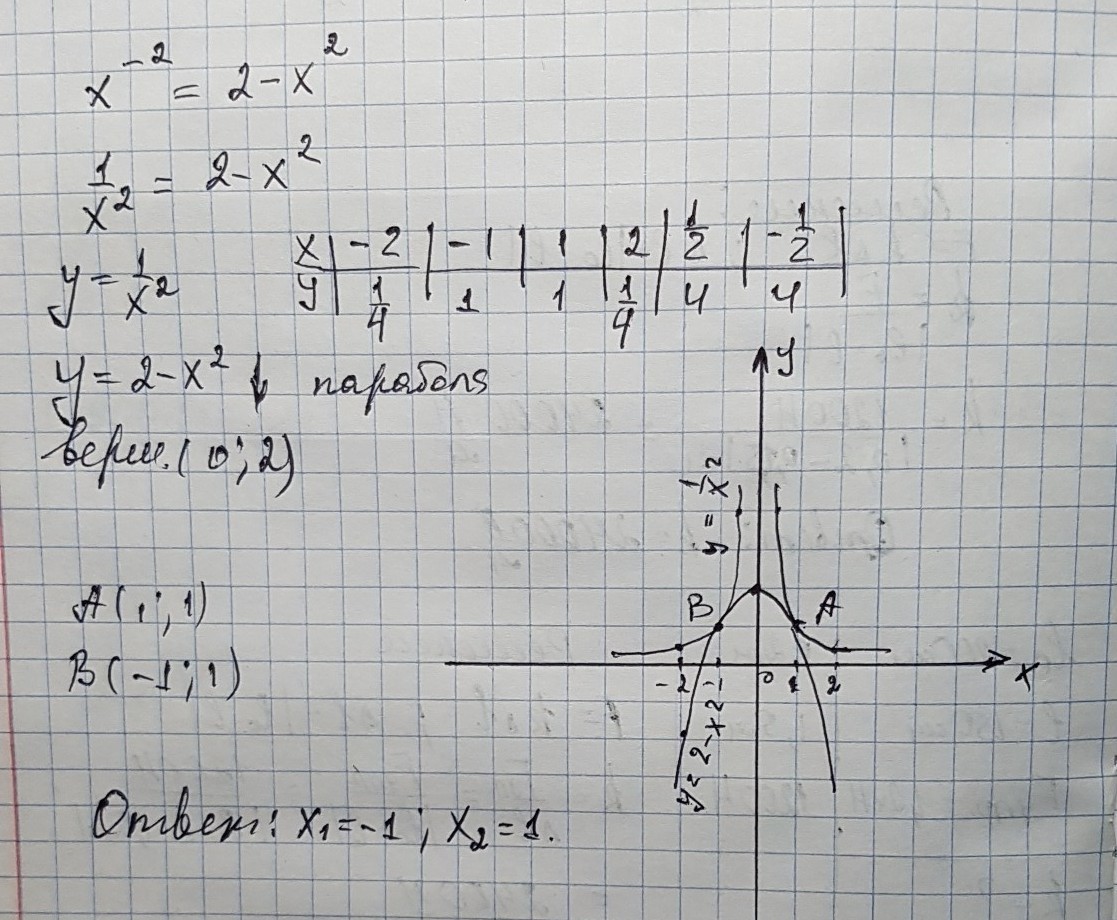 x⁻² = 2 - x²
1/x² = 2 - x²
y = 1/x²
x | -2 | -1 | 1 | 2 | 1/2 | -1/2 |
y | 1/4 | 1 | 1 | 1/4 | 4 | 4
y = 2 - x² ↓ парабола
верш. (0; 2)
A(1; 1)
B(-1; 1)
y
y = 1/x²
B A
-2 -1 0 1 2 x
y = 2 - x²
Ответ: x₁ = -1; x₂ = 1.